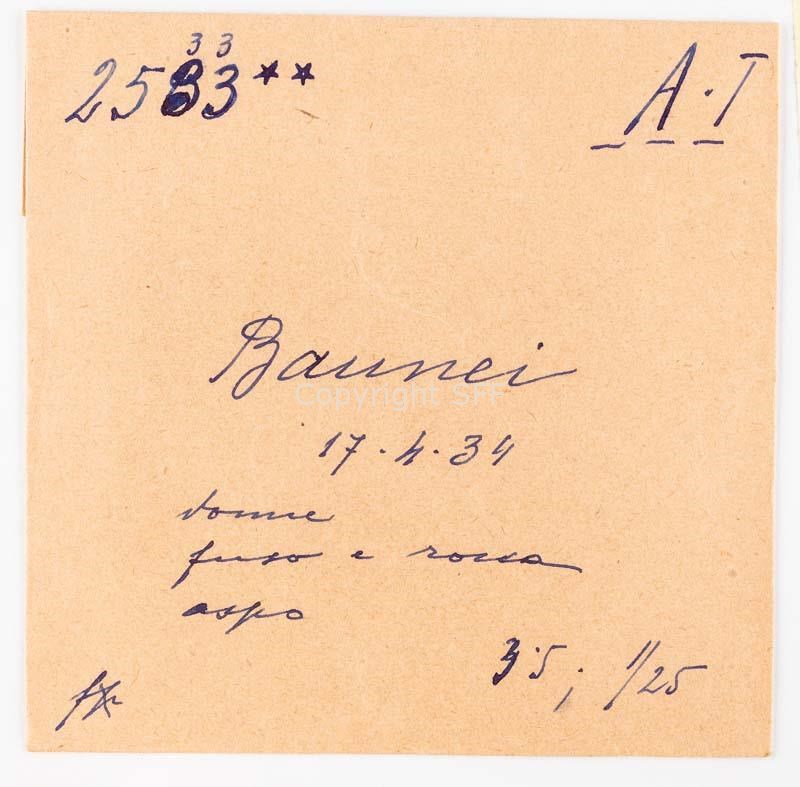 33
2533**
A·I
Baunei
Copyright SFF
17.4.34
donne
fuso e rocca
aspo
3·5; 1/25